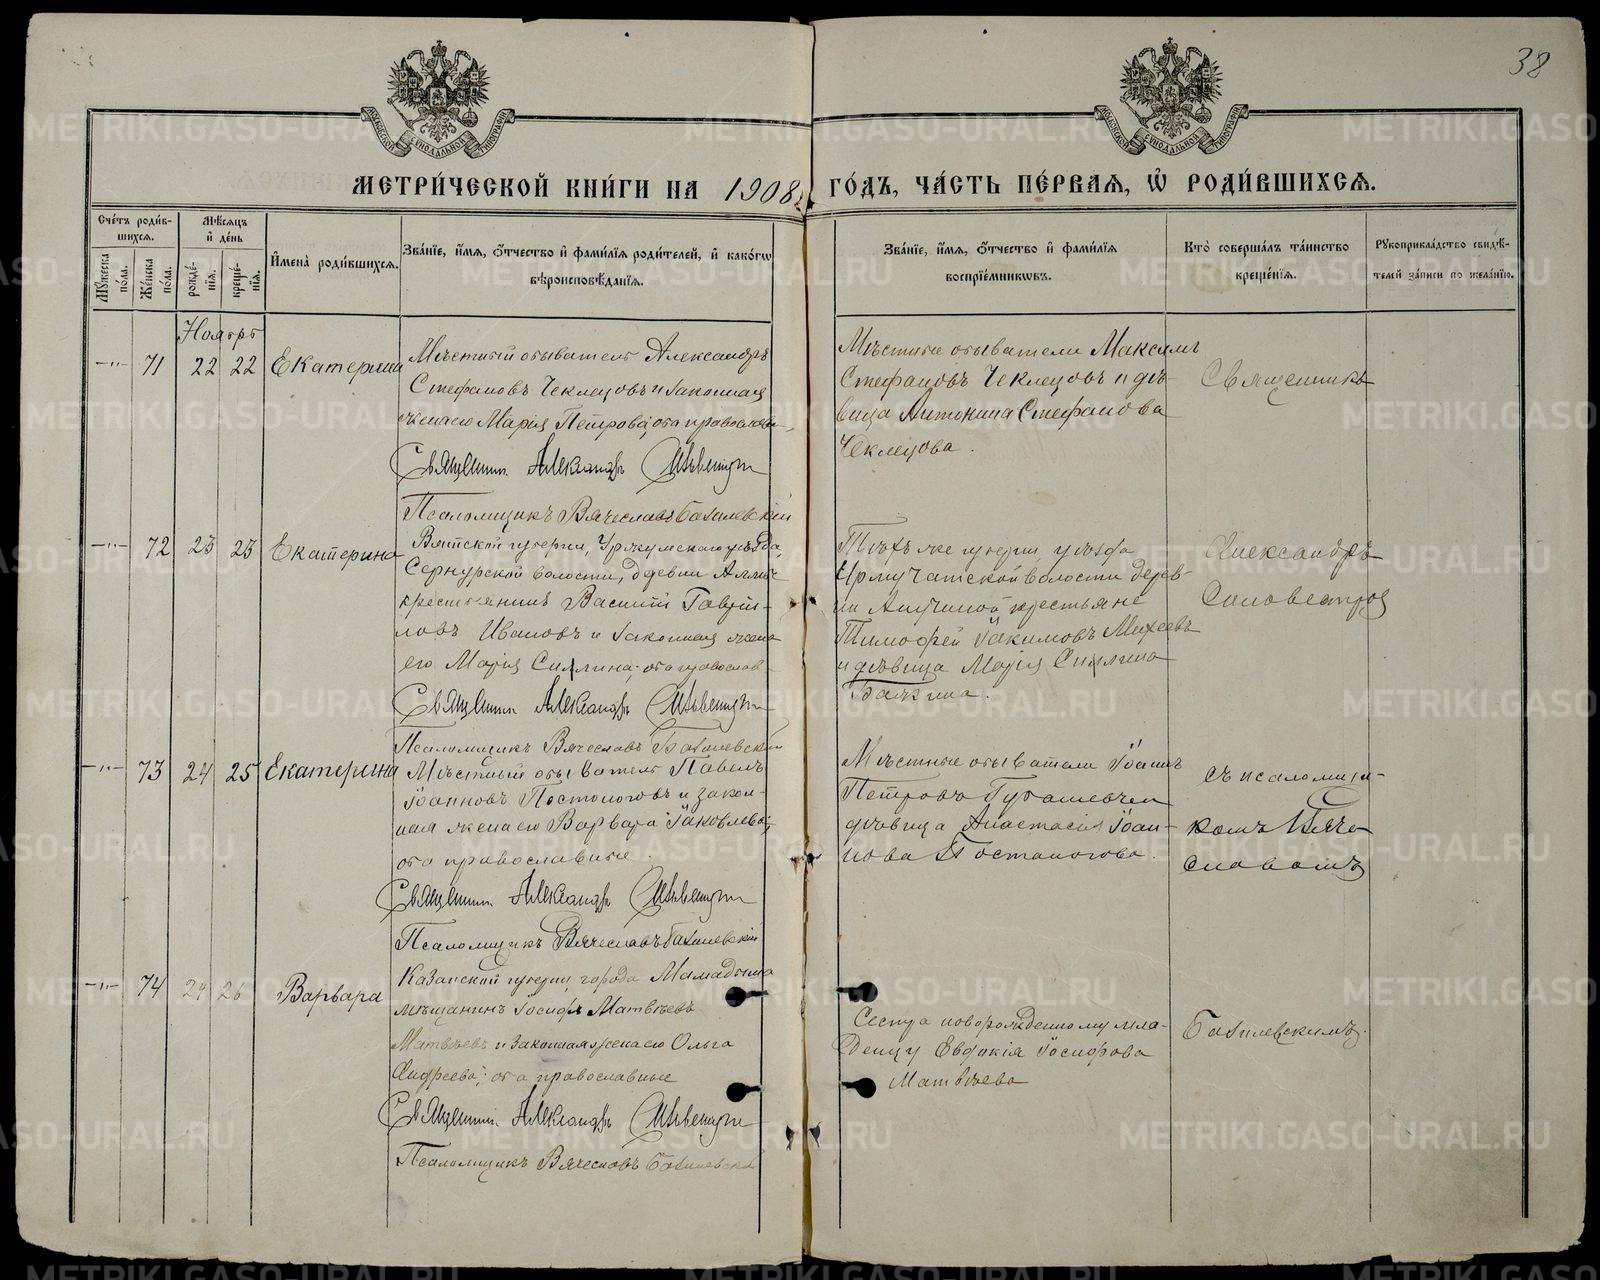 38
МОСКОВСКОЙ СѴНОДАЛЬНОЙ ТИПОГРАФІИ
МОСКОВСКОЙ СѴНОДАЛЬНОЙ ТИПОГРАФІИ
МЕТРИ́ЧЕСКОЙ КНИ́ГИ НА 1908 ГО́ДЪ, ЧА́СТЬ ПЕ́РВАЯ, Ѡ҆ РОДИ́ВШИХСЯ.
Сче́тъ роди́вшихся.
Мꙋ́жеска по́ла.
Же́нска по́ла.
Мѣ́сяцъ и҆ де́нь
рожде́нїя.
креще́нїя.
И҆мена̀ роди́вшихся.
Зва́нїе, и҆́мя, ѻ҆́тчество и҆ фами́лїя роди́телей, и҆ како́гѡ вѣроисповѣ́данїя.
Зва́нїе, и҆́мя, ѻ҆́тчество и҆ фами́лїя воспрїе́мникѡвъ.
Кто̀ соверша́лъ та́инство креще́нїя.
Рꙋкоприкла́дство свидѣ́телей за́писи по жела́нїю.
Ноябрь
—"— 71 22 22 Екатерина
Мѣстный обыватель Александръ
Стефановъ Чеклецовъ и законная
жена его Марія Петрова; оба православн.
Священник Александръ
Псаломщикъ Вячеславъ
Мѣстные обыватели Максимъ
Стефановъ Чеклецовъ и дѣ-
вица Антонина Стефанова
Чеклецова.
Священникъ
—"— 72 23 23 Екатерина
Вятской губерніи, Уржумскаго уѣзда,
Сернурской волости, деревни
крестьянинъ Василій Гаврии-
ловъ Ивановъ и законная жена
его Марія Силлина; оба православ
Священник Александръ
Псаломщикъ Вячеславъ
Тѣхъ же губерніи, уѣзда
волости дерев-
ни крестьяне
Тимофей Іакимовъ Михеевъ
и дѣвица Марія Силлина
Бачкина.
Александръ
—"— 73 24 25 Екатерина
Мѣстный обыватель Павелъ
Іоанновъ Постоноговъ и закон-
ная жена его Варвара Іаковлева;
оба православные.
Священник Александръ
Псаломщикъ Вячеславъ
Мѣстные обыватели Іоаннъ
Петровъ и
дѣвица Анастасія Іоан-
нова Постоногова.
съ псаломщи-
комъ Вяче-
славомъ
—"— 74 24 26 Варвара
Казанской губерніи города Мамадыша
мѣщанинъ Іосифъ Матвѣевъ
Матвѣевъ и законная жена его Ольга
Андреева; оба православные
Священник Александръ
Псаломщикъ Вячеславъ
Сестра новорожденному мла-
денцу Евдокія Іосифова
Матвѣева
METRIKI.GASO-URAL.RU